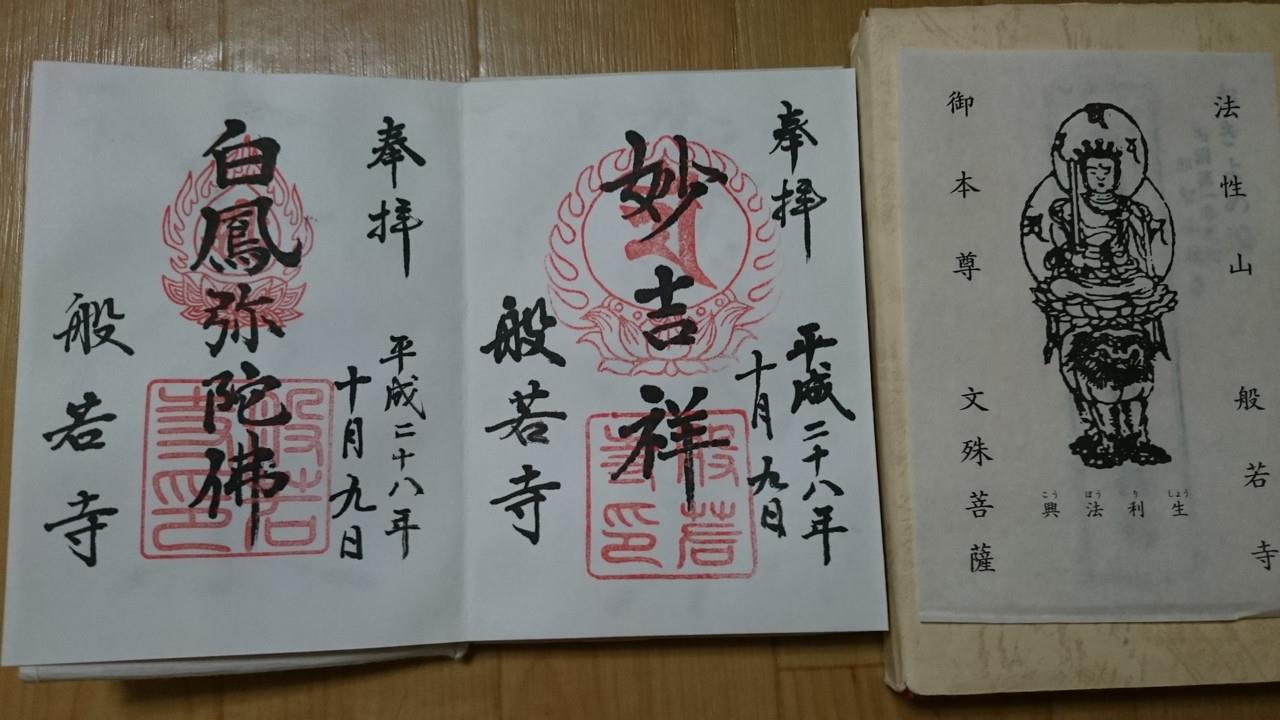 法性山 般若寺
生利法興
しょう り ほう こう
御本尊 文殊菩薩
奉拝
平成二十八年
十月九日
妙吉祥
般若寺
般若寺印
奉拝
平成二十八年
十月九日
白鳳弥陀佛
般若寺
般若寺印